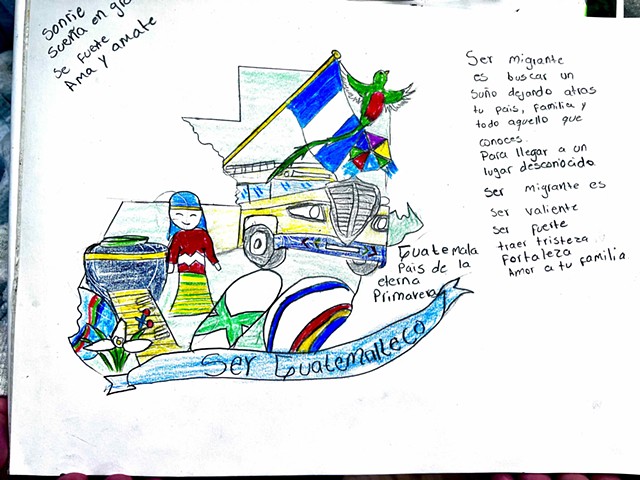 Sonrie
Sueña en
Se fuerte
Ama y amate
Ser migrante
es buscar un
Suño dejando atras
tu pais, familia y
todo aquello que
conoces.
Para llegar a un
lugar desconocido
Ser migrante es
Ser valiente
Ser fuerte
traer tristeza
Fortaleza
Amor a tu familia
Guatemala
Pais de la
eterna
Primavera
Ser Guatemalteco